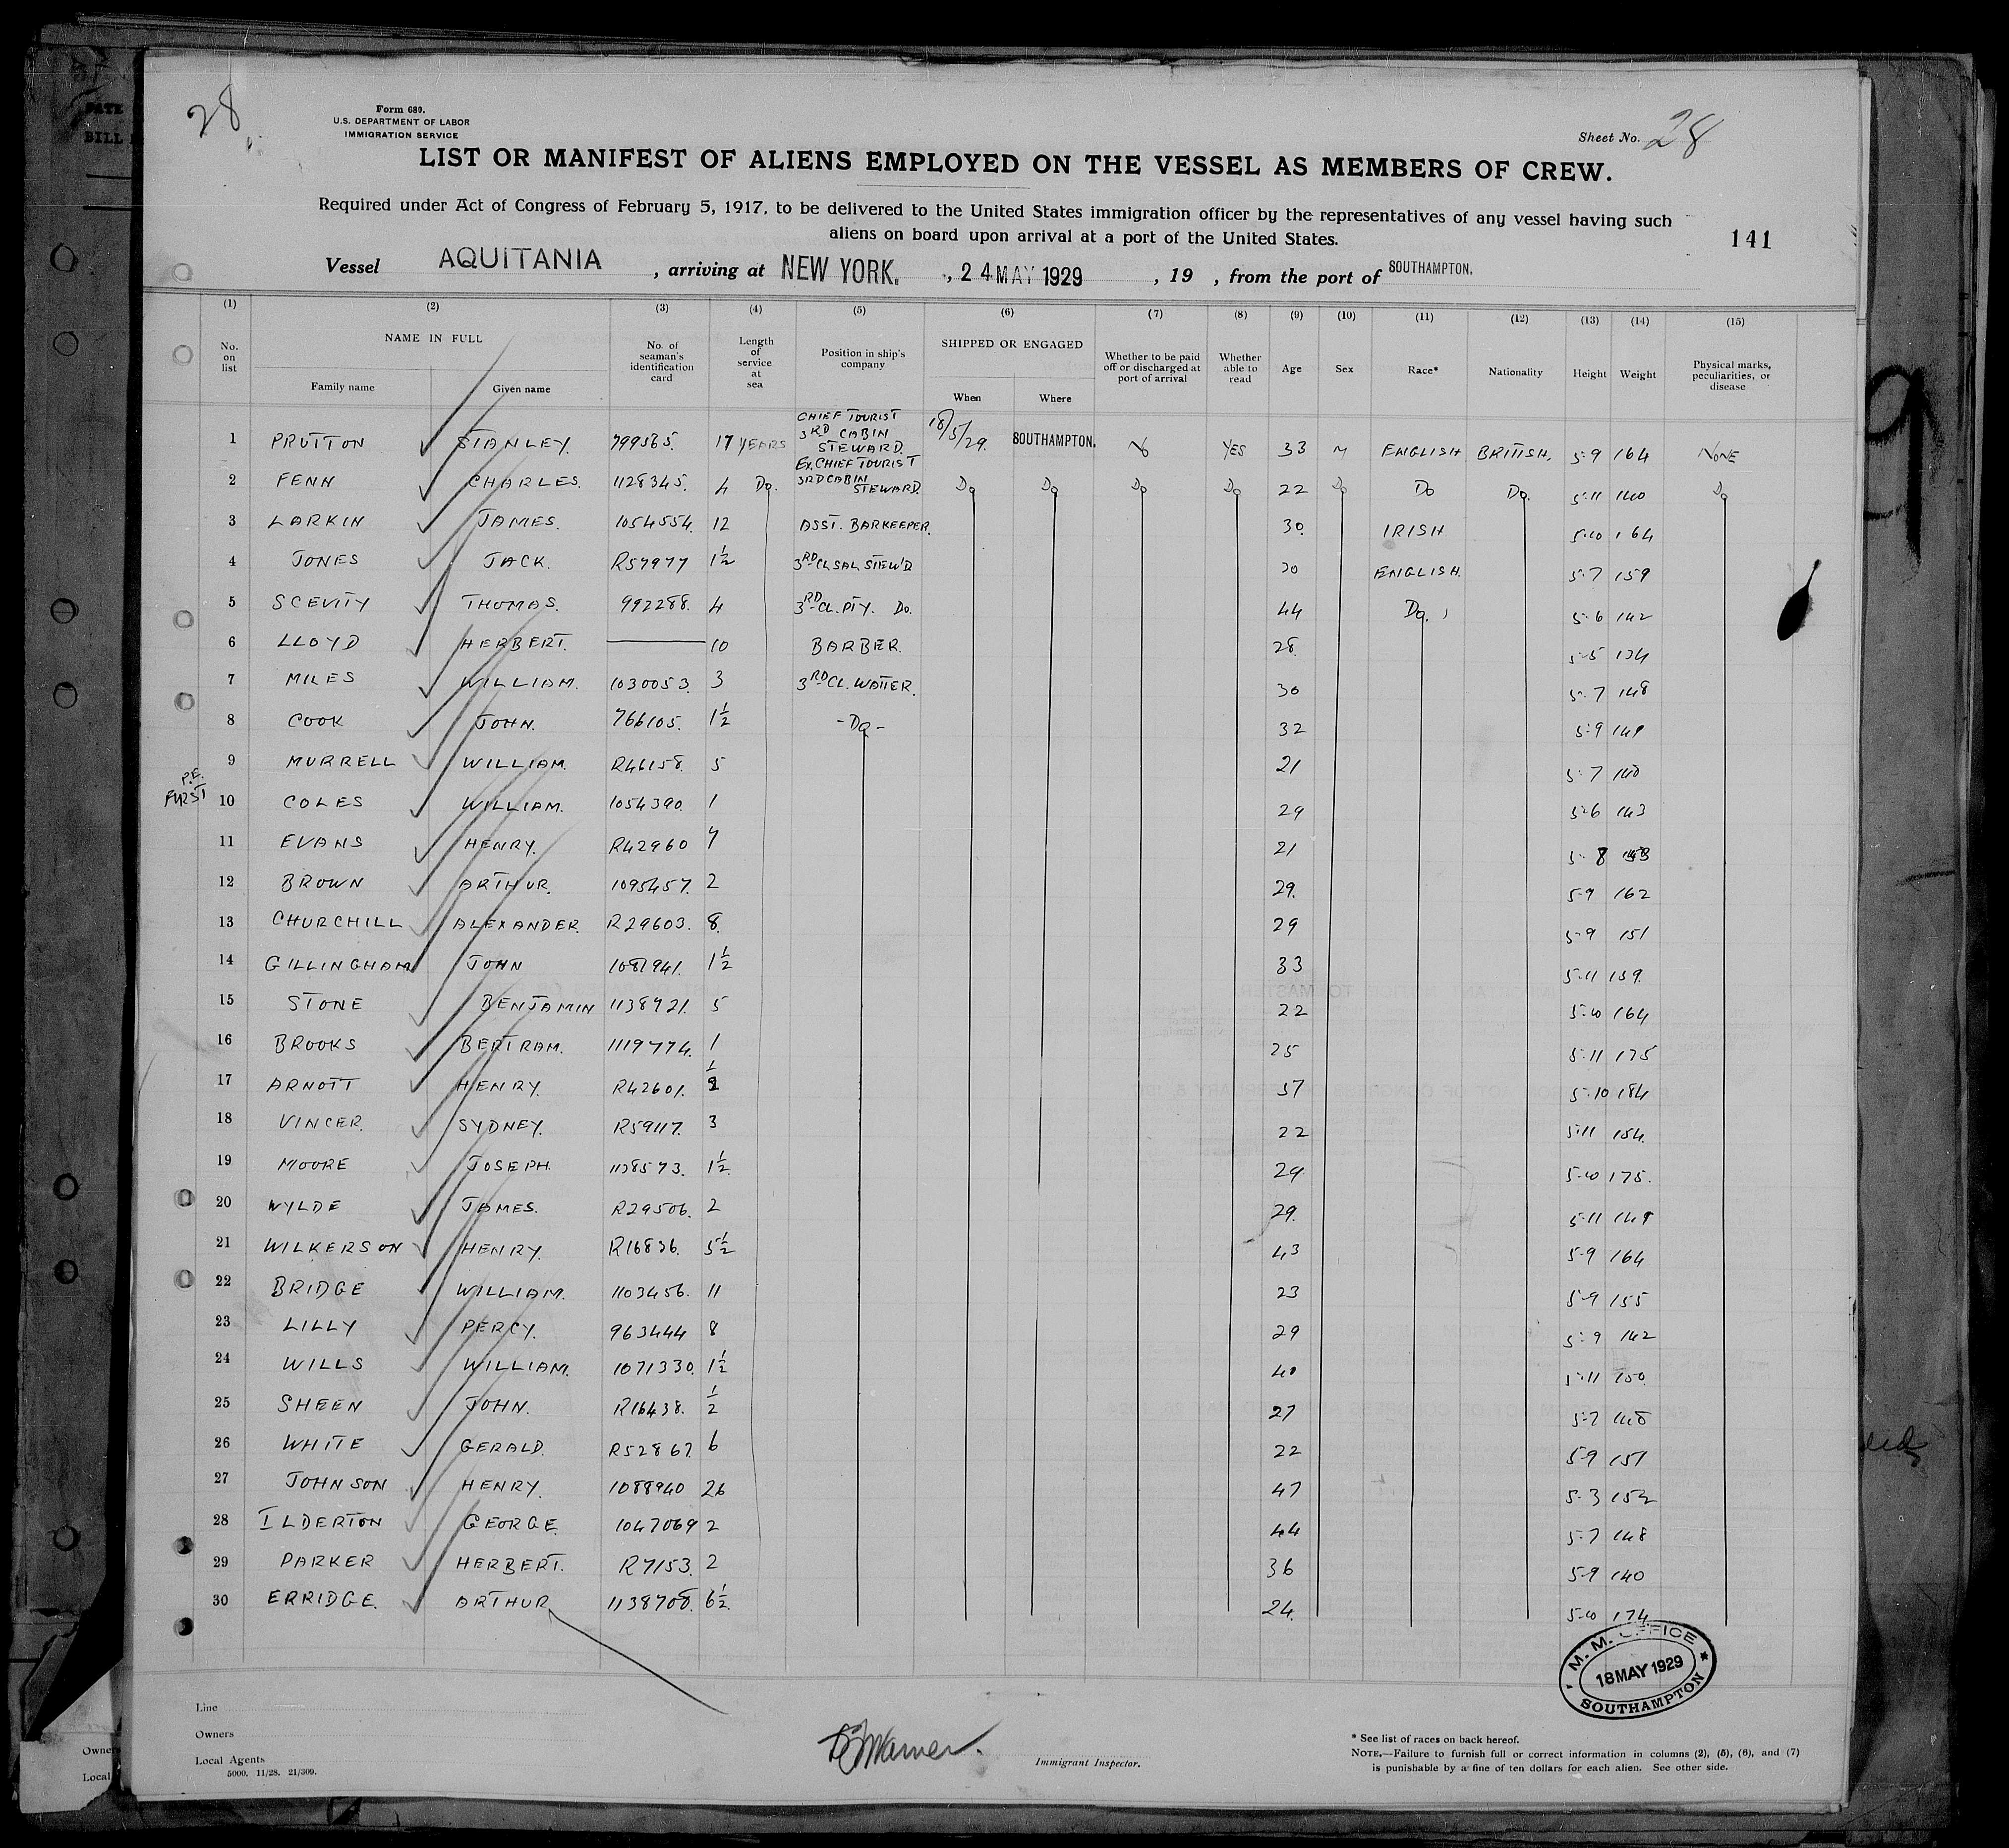 28
Form 680.
U.S. DEPARTMENT OF LABOR
IMMIGRATION SERVICE
Sheet No. 28
LIST OR MANIFEST OF ALIENS EMPLOYED ON THE VESSEL AS MEMBERS OF CREW.
Required under Act of Congress of February 5, 1917, to be delivered to the United States immigration officer by the representatives of any vessel having such
aliens on board upon arrival at a port of the United States.
141
Vessel AQUITANIA , arriving at NEW YORK. , 24 MAY 1929 , 19 , from the port of SOUTHAMPTON.
(1) (2) (3) (4) (5) (6) (7) (8) (9) (10) (11) (12) (13) (14) (15)
No. on list NAME IN FULL Family name Given name No. of seaman's identification card Length of service at sea Position in ship's company SHIPPED OR ENGAGED When Where Whether to be paid off or discharged at port of arrival Whether able to read Age Sex Race* Nationality Height Weight Physical marks, peculiarities, or disease
1 PRUTTON STANLEY. 799565. 17 YEARS CHIEF TOURIST 3RD CABIN STEWARD. 18/5/29. SOUTHAMPTON. No YES 33 M ENGLISH BRITISH. 5-9 164 NONE
2 FENN CHARLES. 1128345. 4 Do. Ex. CHIEF TOURIST 3RD CABIN STEWARD. Do Do Do Do 22 Do Do Do. 5-11 140 Do
3 LARKIN JAMES. 1054554. 12 ASST. BARKEEPER. 30. IRISH 5-10 164
4 JONES JACK. R57977 1½ 3RD CL SAL STEW'D 30 ENGLISH. 5-7 159
5 SCEVITY THOMAS. 992288. 4 3RD CL. PTY. Do. 44 Do. 5-6 142
6 LLOYD HERBERT. 10 BARBER. 28. 5-5 134
7 MILES WILLIAM. 1030053. 3 3RD CL. WAITER. 30 5-7 148
8 COOK JOHN. 766105. 1½ -Do- 32 5-9 149
9 MURRELL WILLIAM. R46158. 5 21 5-7 140
P.E. FURST
10 COLES WILLIAM. 1054390. 1 29 5-6 143
11 EVANS HENRY. R42960 7 21 5-8
12 BROWN ARTHUR. 1095457. 2 29. 5-9 162
13 CHURCHILL ALEXANDER. R29603. 8. 29 5-9 151
14 GILLINGHAM JOHN 1081941. 1½ 33 5-11 159.
15 STONE BENJAMIN 1138921. 5 22 5-10 164
16 BROOKS BERTRAM. 1119774. 1 25 5-11 175
17 ARNOTT HENRY. R42601. ½ 37 5-10 184
18 VINCER. SYDNEY. R59117. 3 22 5-11 154.
19 MOORE JOSEPH. 1138573. 1½ 29 5-10 175.
20 WYLDE JAMES. R29506. 2 29. 5-11 149
21 WILKERSON HENRY. R16836. 5½ 43 5-9 164
22 BRIDGE WILLIAM. 1103456. 11 23 5-9 155
23 LILLY PERCY. 963444 8 29 5-9 142
24 WILLS WILLIAM. 1071330. 1½ 40 5-11 150.
25 SHEEN JOHN. R16438. ½ 27 5-7 148
26 WHITE GERALD. R52867. 6 22 5-9 151
27 JOHNSON HENRY. 1088940 26 47 5-3 152
28 ILDERTON GEORGE. 1047069 2 44 5-7 148
29 PARKER HERBERT. R7153. 2 36 5-9 140
30 ERRIDGE. ARTHUR 1138708. 6½ 24. 5-10 174
M. M. OFFICE
18 MAY 1929
SOUTHAMPTON
Line
Owners
Local Agents
5000. 11/28. 21/309.
Immigrant Inspector.
* See list of races on back hereof.
NOTE.—Failure to furnish full or correct information in columns (2), (5), (6), and (7)
is punishable by a fine of ten dollars for each alien. See other side.